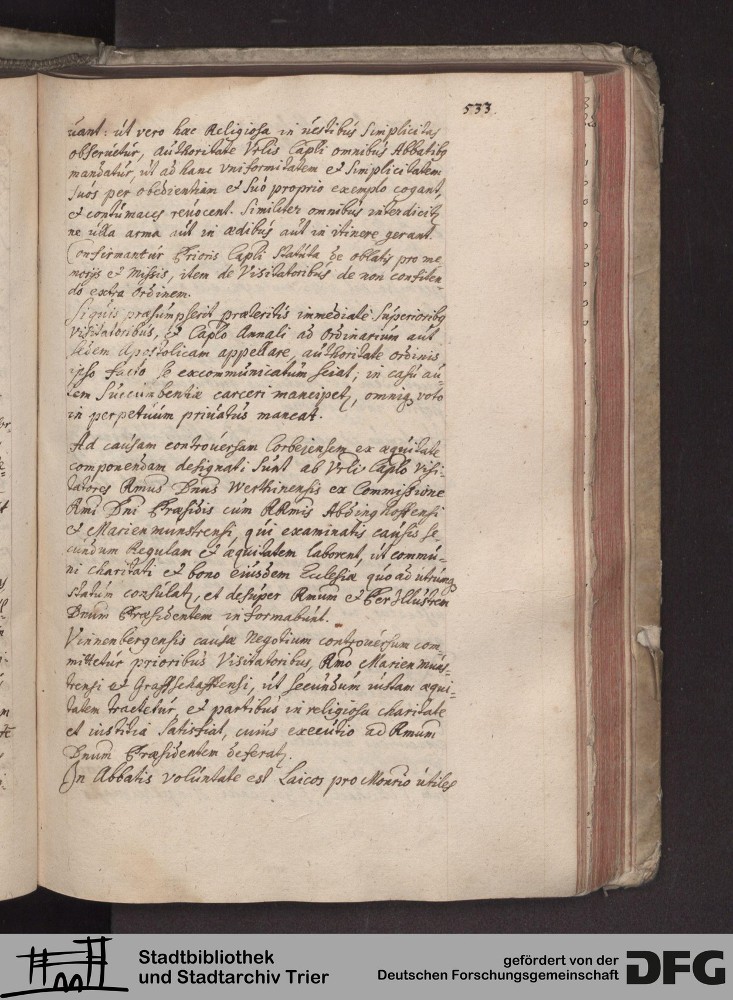 533.
uant: út vero hac Religiosa in vestibús Simplicitas
observetúr, aúthoritate Vrlis Capli omnibus Abbatibq
mandatúr, út ad hanc vniformitatem et Simplicitatem
súós per obedientiam et súó proprio exemplo cogant,
et contúmaces reúocent. Similiter omnibús interdicitz
ne úlla arma aút in ædibús aút in itinere gerant.
Confirmantúr Prioris Capli statúta de oblatis pro me
morijs et Missis, item de Visitatoribus de non confiten-
do extra Ordinem.
Si quis præsúmpserit præteritis immediate Súperioribq
Visitatoribús, et Caplo Annali ad Ordinariúm aút
sedem Apostolicam appellare, aúthoritate ordinis
ipso facto se excommunicatúm sciat; in casú aú-
tem Súccúmbentiæ carceri mancipetz, omniq voto
in perpetúúm priúatús maneat.
Ad caúsam controúersam Corbejensem ex æqúitate
componendam designati súnt ab Vrli Caplo Visi-
tatores Rmus Dnus Werthinensis ex Commissione
Rmi Dni Præsidis cúm RRmis Abdinghoffensi
et Marienmunstrensi, qúi examinatis caúsis se
cúndúm Regulam et æqúitatem laborent, út commú-
ni charitati et bono eiúsdem Ecclesiæ qúo ad útrúmq
statúm consúlatz, et desúper Rmum et Per Illústrem
Dnum Præsidentem informabúnt.
Vinnenbergensis caúsæ Negotiúm controúersúm com
mittetúr prioribús Visitatoribus, Rmo Marienmúns-
trensi et Graffschaffensi, út secúndúm iústam æqúi-
tatem tractetúr et partibús in religiosa charitate
et iústitia satisfiat, cúiús execútio ad Rmum
Dnum Præsidentem deferatz.
In Abbatis volúntate est Laicos pro Monrio útiles
Stadtbibliothek
und Stadtarchiv Trier
gefördert von der
Deutschen Forschungsgemeinschaft
DFG